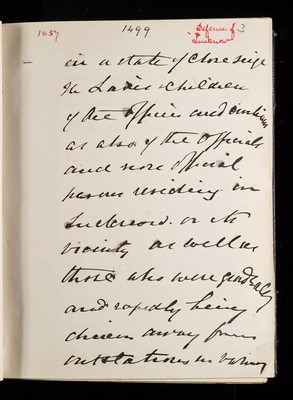 1857
1499
Defence of
"Lucknow"
3
in a state of close siege
the Ladies & children
of the officers and civilians
as also of the officials
and non official
persons residing in
Lucknow. or its
vicinity as well as
those who were gradually
and rapidly being
driven away from
outstations in various